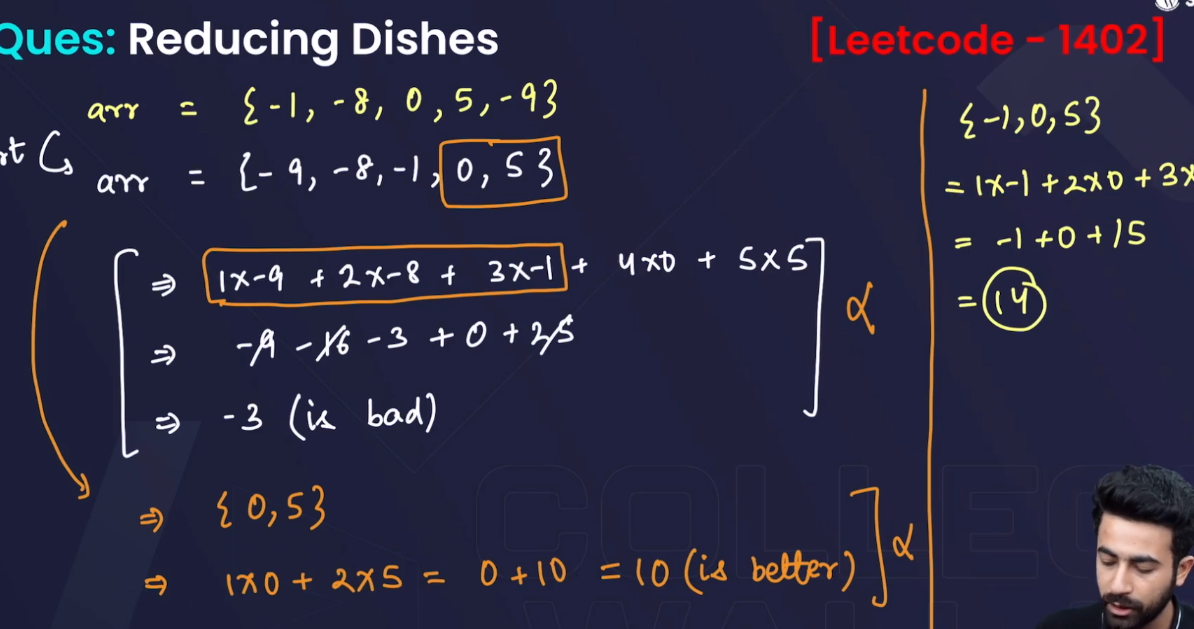 Ques: Reducing Dishes
[Leetcode - 1402]
arr = {-1, -8, 0, 5, -9}
arr = {-9, -8, -1, 0, 5}
⇒ 1x-9 + 2x-8 + 3x-1 + 4x0 + 5x5
⇒ -9 -16 -3 + 0 + 25
⇒ -3 (is bad)
α
⇒ {0, 5}
⇒ 1x0 + 2x5 = 0+10 = 10 (is better)
α
{-1, 0, 5}
= 1x-1 + 2x0 + 3x
= -1 + 0 + 15
= 14
COLLEG
WALL